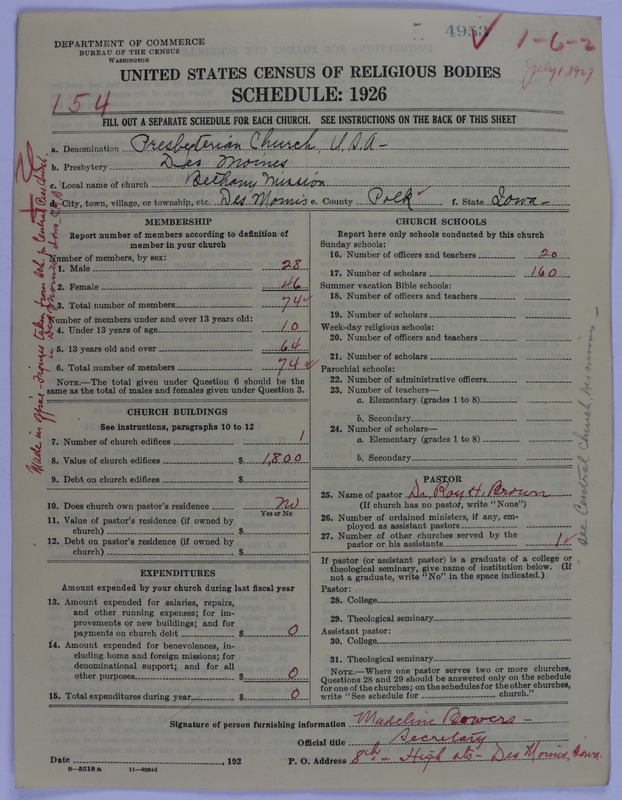 DEPARTMENT OF COMMERCE
BUREAU OF THE CENSUS
WASHINGTON
4953
1-6-2
July 1, 1927
UNITED STATES CENSUS OF RELIGIOUS BODIES
SCHEDULE: 1926
154
FILL OUT A SEPARATE SCHEDULE FOR EACH CHURCH. SEE INSTRUCTIONS ON THE BACK OF THIS SHEET
a. Denomination Presbyterian Church, U.S.A-
b. Presbytery Des Moines
c. Local name of church Bethany Mission
d. City, town, village, or township, etc. Des Moines e. County Polk f. State Iowa-
MEMBERSHIP
Report number of members according to definition of member in your church
Number of members, by sex:
1. Male 28
2. Female 46
3. Total number of members 74
Number of members under and over 13 years old:
4. Under 13 years of age 10
5. 13 years old and over 64
6. Total number of members 74
NOTE.—The total given under Question 6 should be
same as the total of males and females given under Question 3.
CHURCH BUILDINGS
See instructions, paragraphs 10 to 12
7. Number of church edifices 1
8. Value of church edifices $ 1,800
9. Debt on church edifices $
10. Does church own pastor's residence no
Yes or No
11. Value of pastor's residence (if owned by
church) $
12. Debt on pastor's residence (if owned by
church) $
EXPENDITURES
Amount expended by your church during last fiscal year
13. Amount expended for salaries, repairs,
and other running expenses; for im-
provements or new buildings; and for
payments on church debt $ 0
14. Amount expended for benevolences, in-
cluding home and foreign missions; for
denominational support; and for all
other purposes $ 0
15. Total expenditures during year $ 0
CHURCH SCHOOLS
Report here only schools conducted by this church
Sunday schools:
16. Number of officers and teachers 20
17. Number of scholars 160
Summer vacation Bible schools:
18. Number of officers and teachers
19. Number of scholars
Week-day religious schools:
20. Number of officers and teachers
21. Number of scholars
Parochial schools:
22. Number of administrative officers
23. Number of teachers—
a. Elementary (grades 1 to 8)
b. Secondary
24. Number of scholars—
a. Elementary (grades 1 to 8)
b. Secondary
PASTOR
25. Name of pastor Dr. Roy H. Brown
(If church has no pastor, write "None")
26. Number of ordained ministers, if any, em-
ployed as assistant pastors
27. Number of other churches served by the
pastor or his assistants 1
If pastor (or assistant pastor) is a graduate of a college or
theological seminary, give name of institution below. (If
not a graduate, write "No" in the space indicated.)
Pastor:
28. College
29. Theological seminary
Assistant pastor:
30. College
31. Theological seminary
NOTE.—Where one pastor serves two or more churches,
Questions 28 and 29 should be answered only on the schedule
for one of the churches; on the schedules for the other churches,
write "See schedule for church."
Signature of person furnishing information Madeline Bowers-
Official title Secretary
Date , 192 P. O. Address 8th + High sts- Des Moines, Iowa.
8—5518 a 11—9084d
Made in office - Figures taken from sch. for Central Pres. Church.
in Des Moines, Iowa
See Central Church,